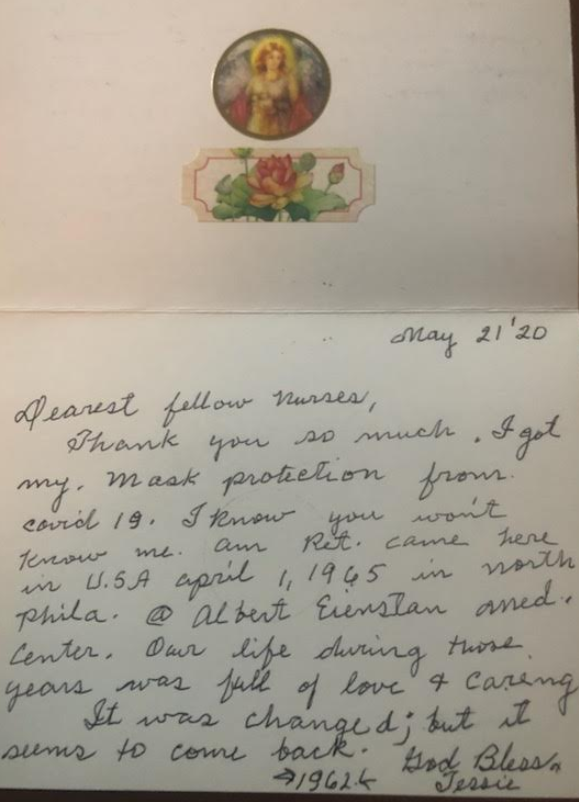 May 21'20
Dearest fellow nurses,
Thank you so much. I got
my. Mask protection from.
covid 19. I know you won't
know me. am Ret. came here
in U.S.A april 1, 1965 in north
phila. @ Albert Eienstan med.
Center. Our life during those
years was full of love & caring
It was changed; but it
seems to come back. God Bless,
→1962← Jessie